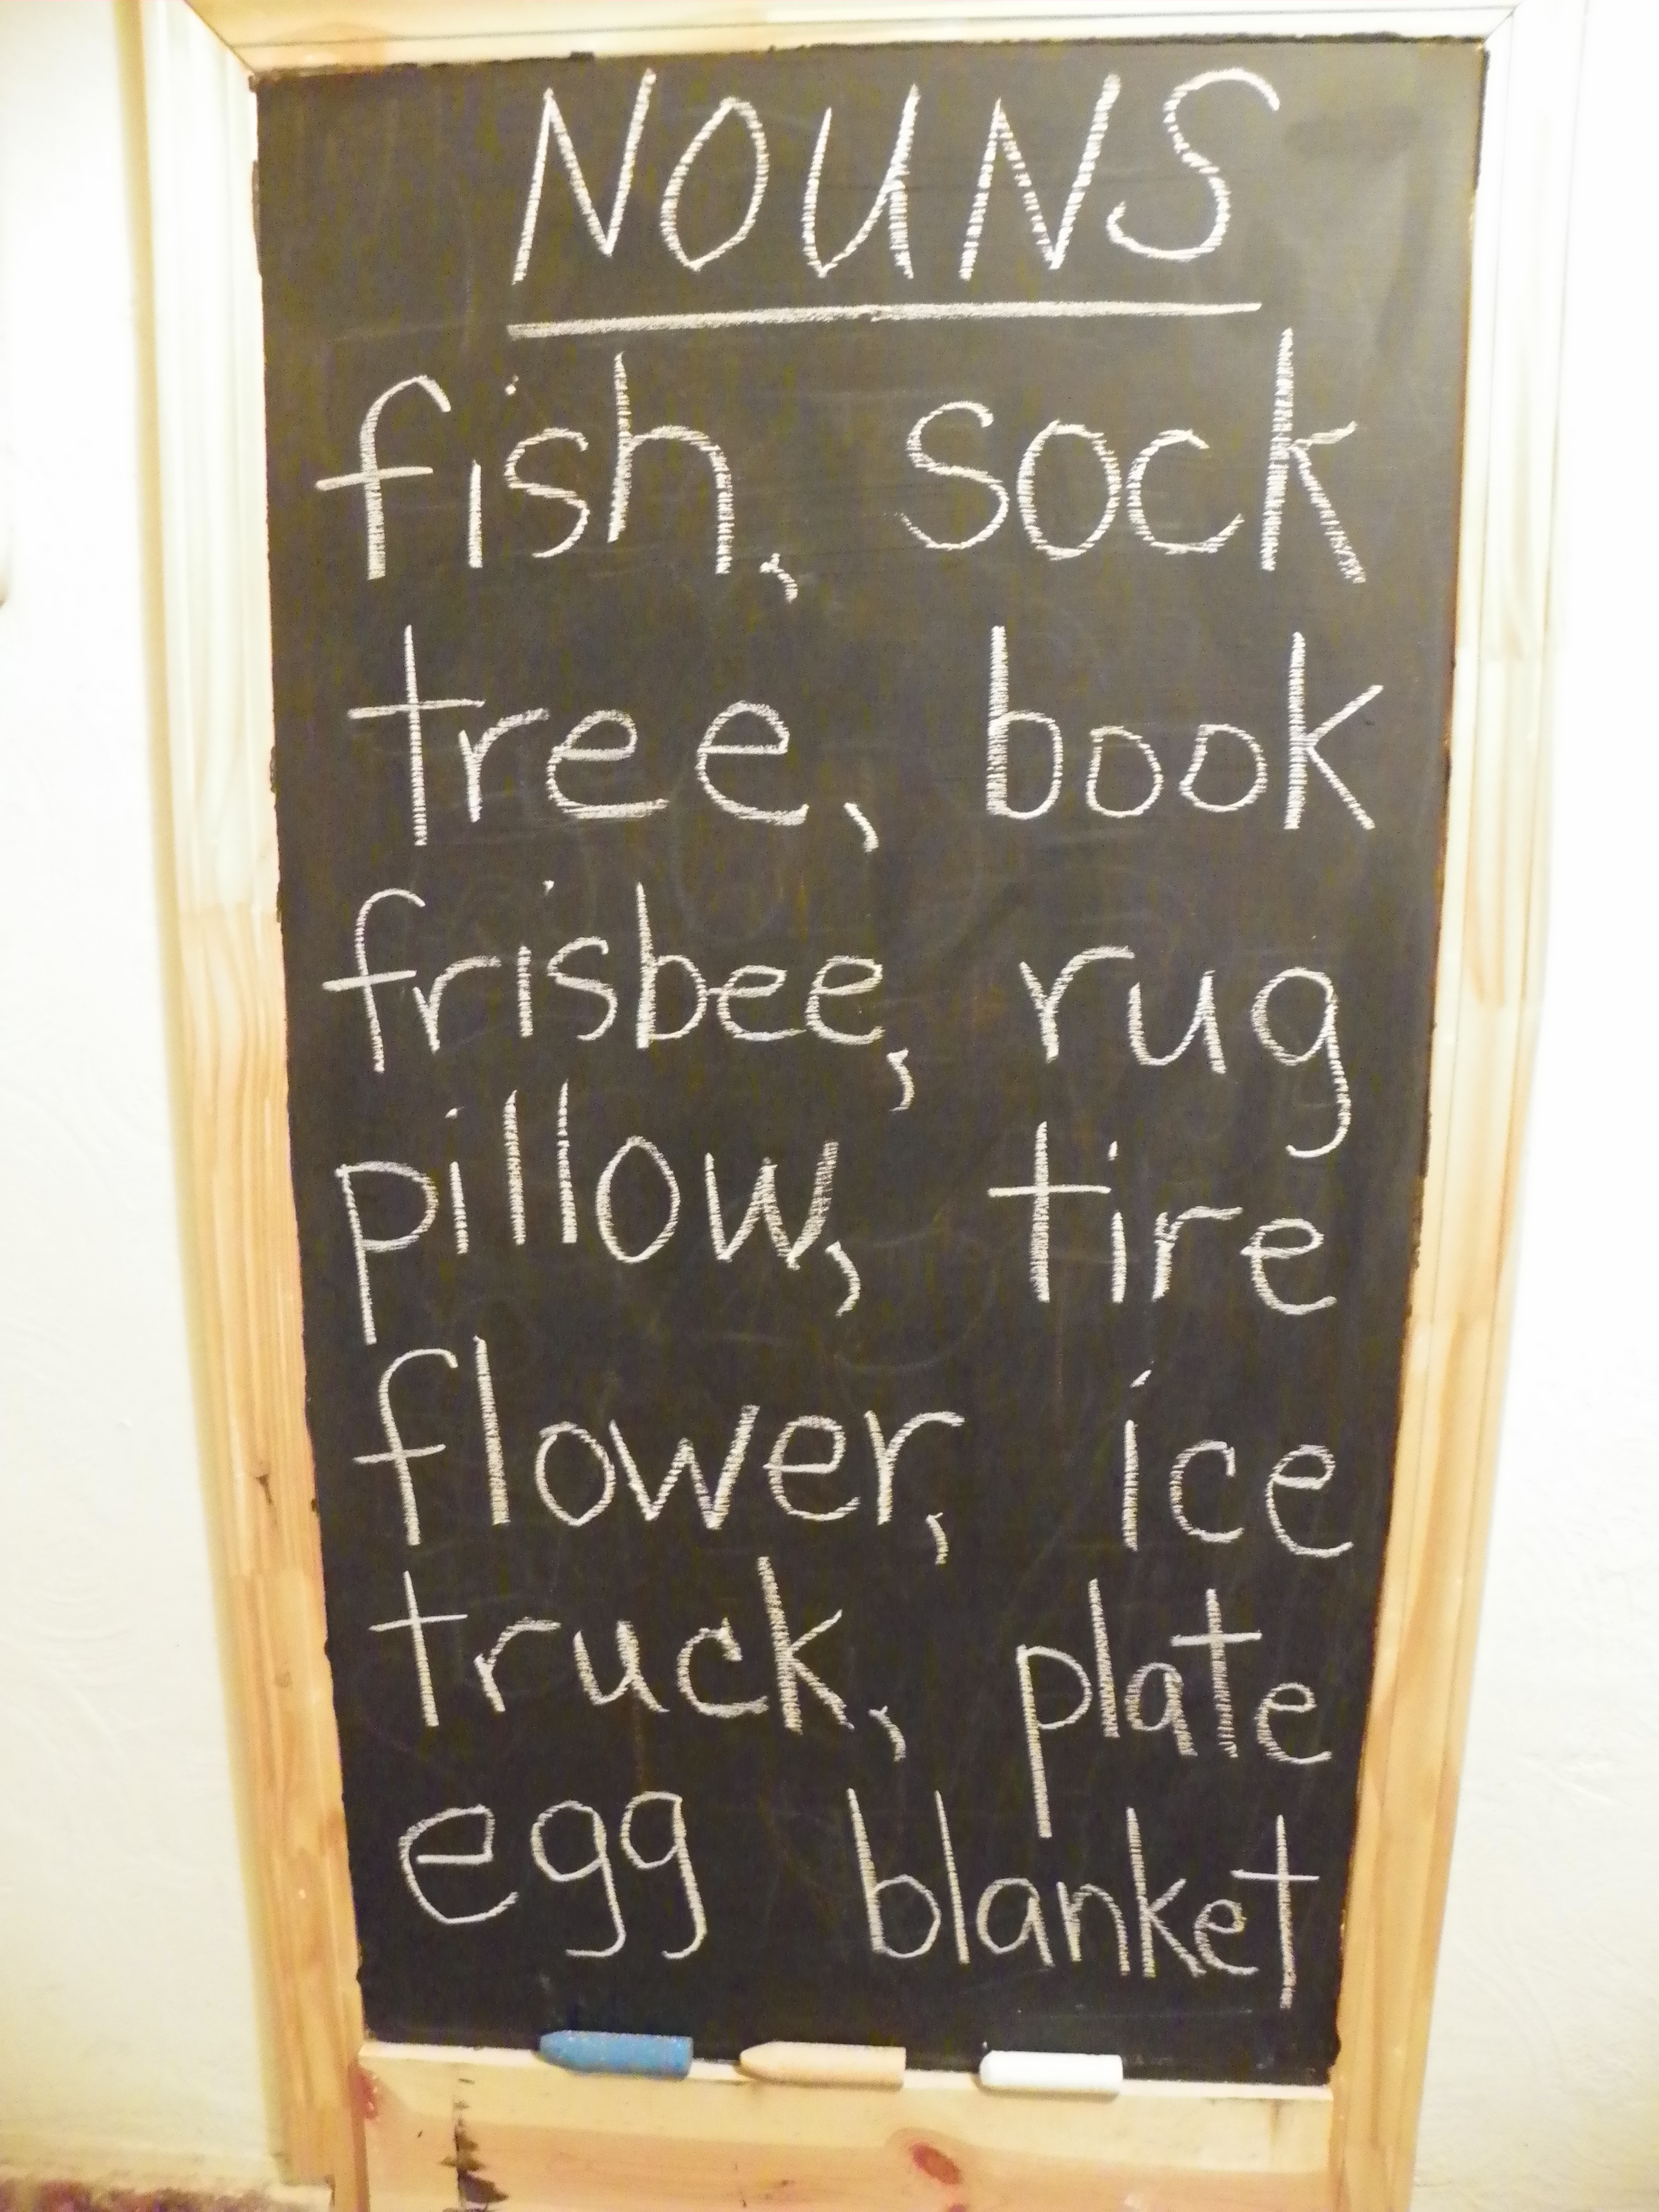 NOUNS
fish, sock
tree, book
frisbee, rug
pillow, tire
flower, ice
truck, plate
egg blanket